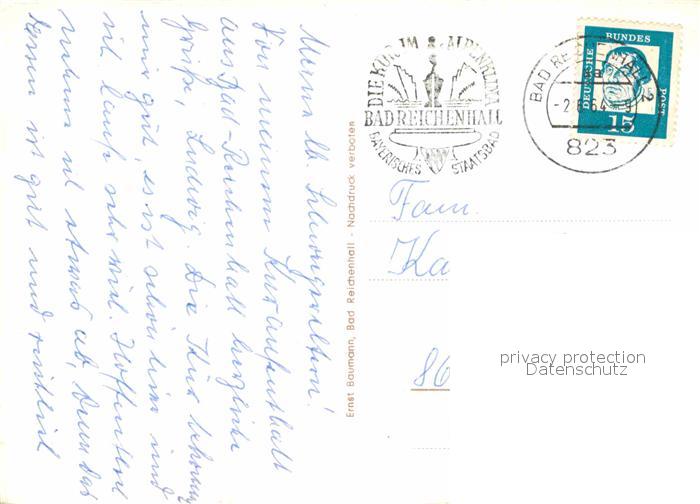 Meine lb. Schwiegereltern!
Von meinem Kuraufenthalt
aus Bad-Reichenhall herzliche
Grüße, Ludwig. Die Kur bekommt
mir gut, es ist schön hier und
ich laufe sehr viel. Hoffentlich
nehme ich etwas ab, denn das
Essen ist gut und reichlich
Ernst Baumann, Bad Reichenhall - Nachdruck verboten
DIE KUR IM ALPENKLIMA
BAD REICHENHALL
BAYERISCHES STAATSBAD
BAD REICHENHALL 2
a
823
DEUTSCHE BUNDES POST
15
Fam.
Ka
86
privacy protection
Datenschutz